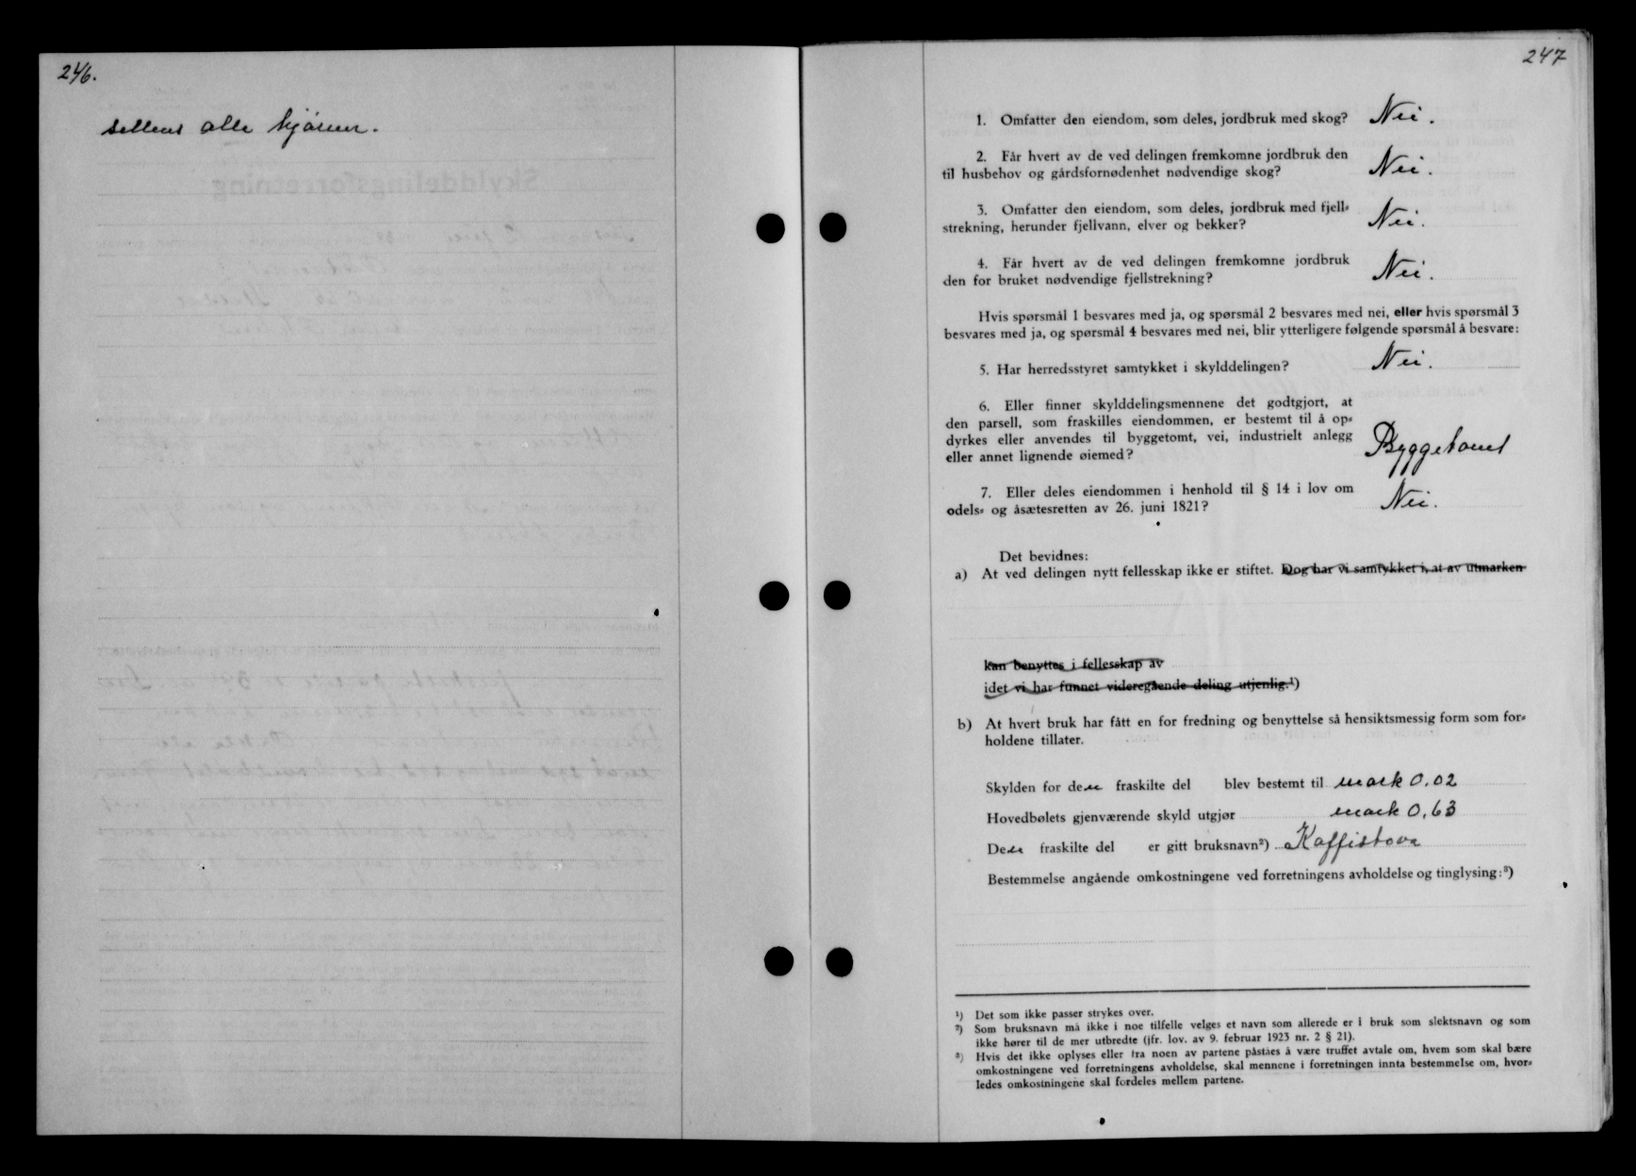 246.
alle hjørner.
247
1. Omfatter den eiendom, som deles, jordbruk med skog? Nei.
2. Får hvert av de ved delingen fremkomne jordbruk den
til husbehov og gårdsfornødenhet nødvendige skog? Nei.
3. Omfatter den eiendom, som deles, jordbruk med fjell-
strekning, herunder fjellvann, elver og bekker? Nei.
4. Får hvert av de ved delingen fremkomne jordbruk
den for bruket nødvendige fjellstrekning? Nei.
Hvis spørsmål 1 besvares med ja, og spørsmål 2 besvares med nei, eller hvis spørsmål 3
besvares med ja, og spørsmål 4 besvares med nei, blir ytterligere følgende spørsmål å besvare:
5. Har herredsstyret samtykket i skylddelingen? Nei.
6. Eller finner skylddelingsmennene det godtgjort, at
den parsell, som fraskilles eiendommen, er bestemt til å op-
dyrkes eller anvendes til byggetomt, vei, industrielt anlegg
eller annet lignende øiemed? Byggetomt
7. Eller deles eiendommen i henhold til § 14 i lov om
odels- og åsætesretten av 26. juni 1821? Nei.
Det bevidnes:
a) At ved delingen nytt fellesskap ikke er stiftet. Dog har vi samtykket i, at av utmarken
kan benyttes i fellesskap av
idet vi har funnet videregående deling utjenlig.¹)
b) At hvert bruk har fått en for fredning og benyttelse så hensiktsmessig form som for-
holdene tillater.
Skylden for den fraskilte del blev bestemt til mark 0.02
Hovedbølets gjenværende skyld utgjør mark 0,63
Den fraskilte del er gitt bruksnavn²) Kaffistova
Bestemmelse angående omkostningene ved forretningens avholdelse og tinglysing:³)
¹) Det som ikke passer strykes over.
²) Som bruksnavn må ikke i noe tilfelle velges et navn som allerede er i bruk som slektsnavn og som
ikke hører til de mer utbredte (jfr. lov. av 9. februar 1923 nr. 2 § 21).
³) Hvis det ikke oplyses eller fra noen av partene påståes å være truffet avtale om, hvem som skal bære
omkostningene ved forretningens avholdelse, skal mennene i forretningen innta bestemmelse om, hvor-
ledes omkostningene skal fordeles mellem partene.